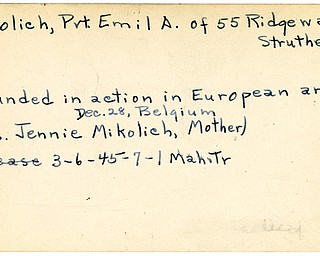 olich, Pvt. Emil A. of 55 Ridgewa
Struthe
unded in action in European ar
Dec. 28, Belgium
. Jennie Mikolich, Mother)
ease 3-6-45-7-1 Mah.Tr